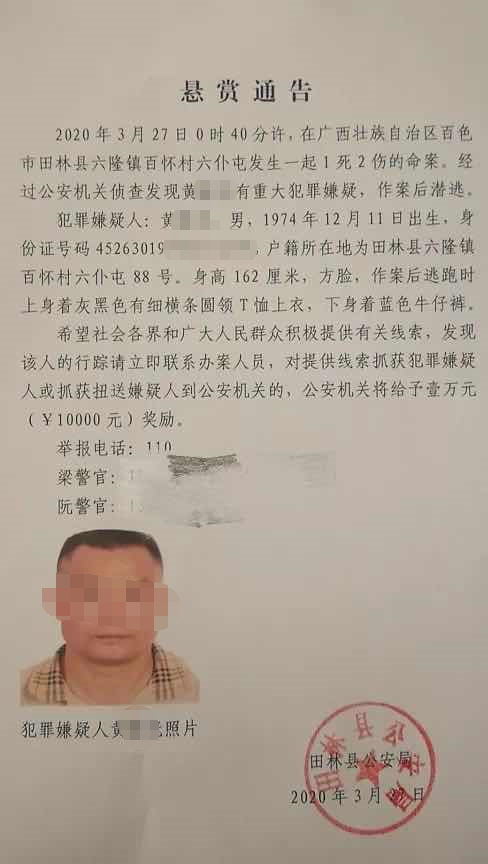 悬赏通告
2020年3月27日0时40分许,在广西壮族自治区百色
市田林县六隆镇百怀村六仆屯发生一起1死2伤的命案。经
过公安机关侦查发现黄 有重大犯罪嫌疑，作案后潜逃。
犯罪嫌疑人：黄 男，1974年12月11日出生，身
份证号码45263019 ,户籍所在地为田林县六隆镇
百怀村六仆屯88号。身高162厘米，方脸，作案后逃跑时
上身着灰黑色有细横条圆领T恤上衣，下身着蓝色牛仔裤。
希望社会各界和广大人民群众积极提供有关线索，发现
该人的行踪请立即联系办案人员，对提供线索抓获犯罪嫌疑
人或抓获扭送嫌疑人到公安机关的，公安机关将给予壹万元
（￥10000元）奖励。
举报电话：110
梁警官：
阮警官：
犯罪嫌疑人黄 照片
田林县公安局
2020年3月 日
田林县公安局